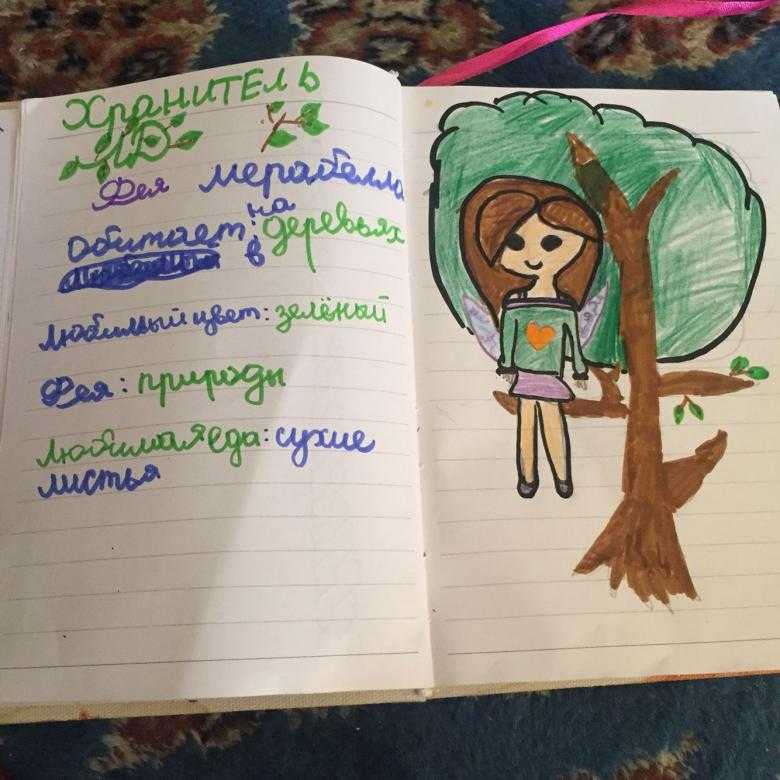 Хранитель
Фея мерабелла
Обитает: на деревьях
в
Любимый цвет: зелёный
Фея: природы
Любимая еда: сухие
листья